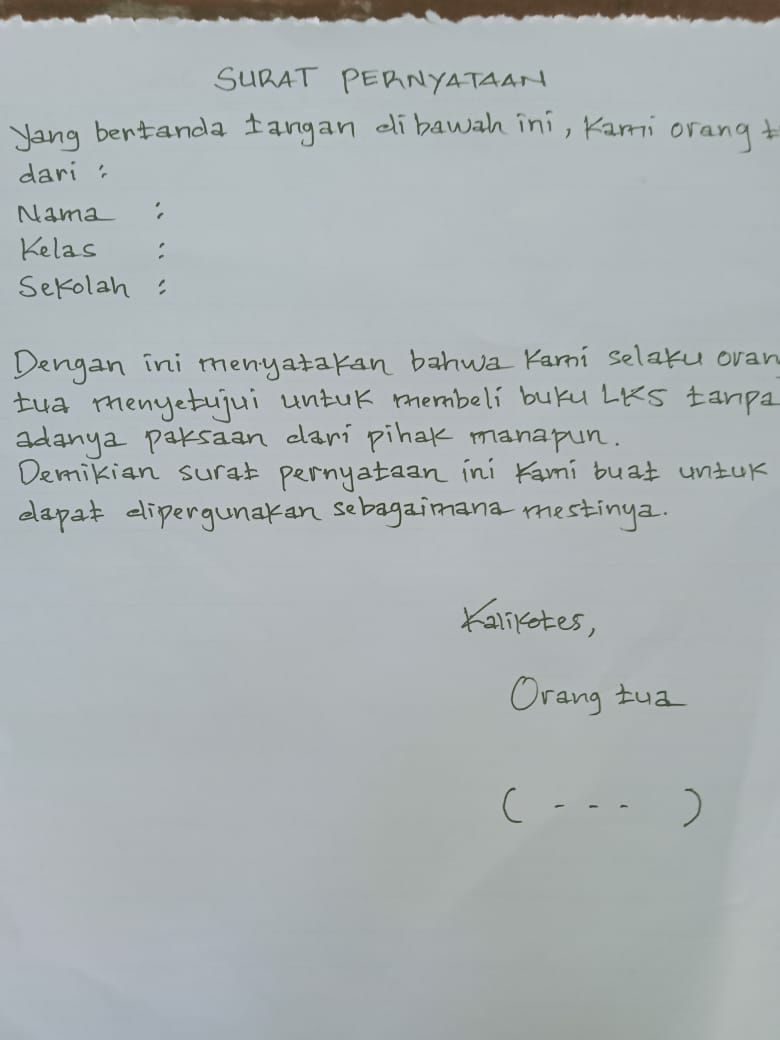 SURAT PERNYATAAN
Yang bertanda tangan dibawah ini, Kami orang t
dari :
Nama :
Kelas :
Sekolah :
Dengan ini menyatakan bahwa Kami selaku oran
tua menyetujui untuk membeli buku LKS tanpa
adanya paksaan dari pihak manapun.
Demikian surat pernyataan ini Kami buat untuk
dapat dipergunakan sebagaimana mestinya.
Kalikotes,
Orang tua
( - - - )